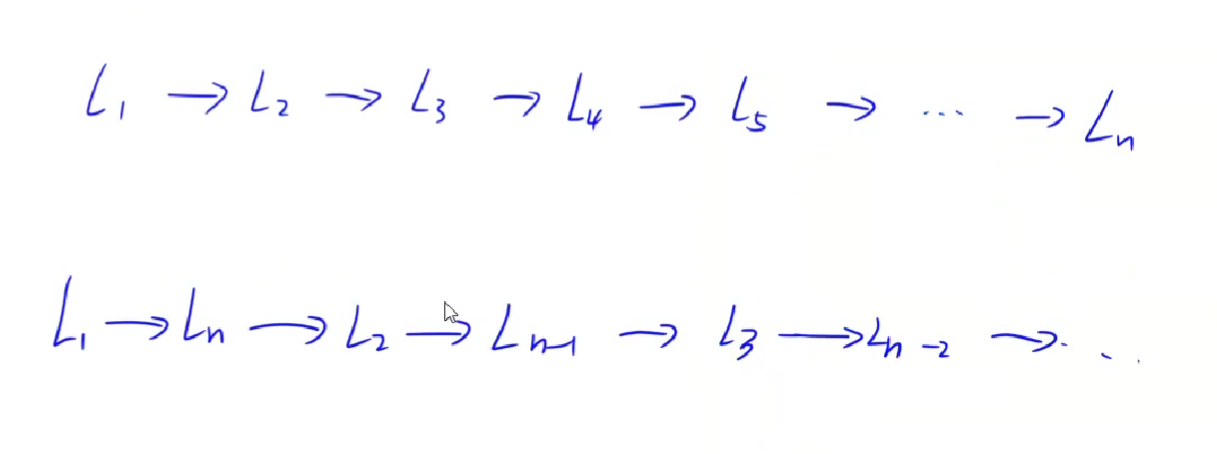 L₁ → L₂ → L₃ → L₄ → L₅ → ... → Lₙ
L₁ → Lₙ → L₂ → Lₙ₋₁ → L₃ → Lₙ₋₂ → ...